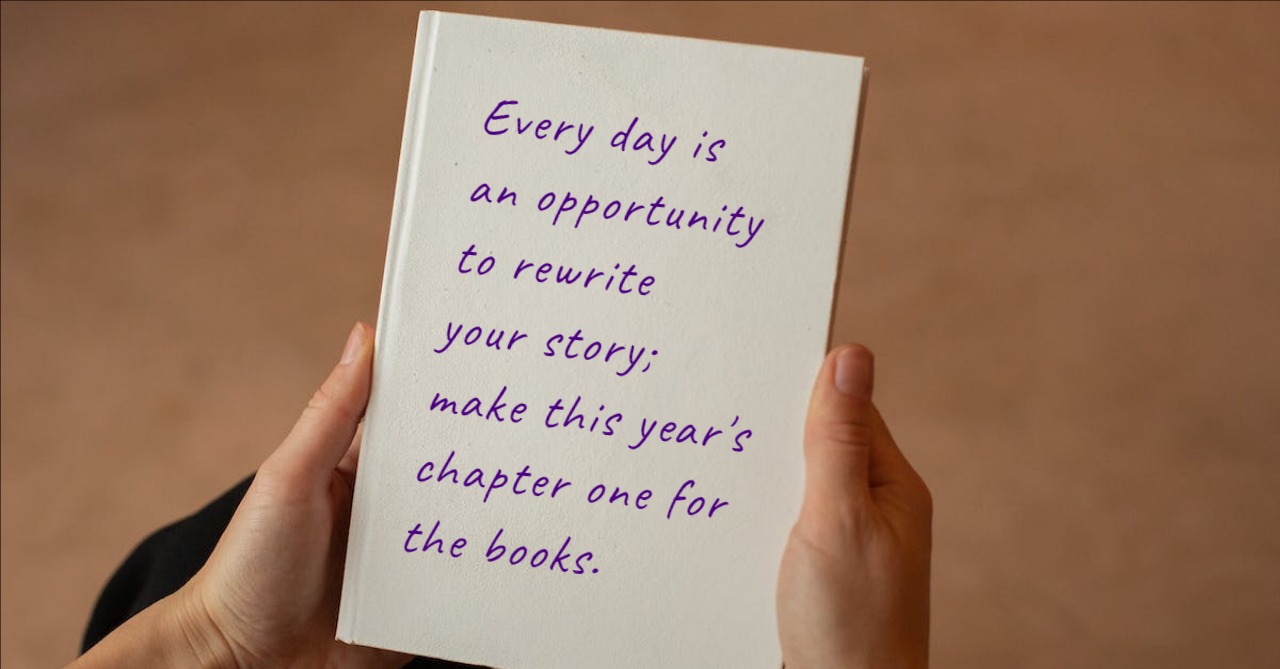 Every day is
an opportunity
to rewrite
your story;
make this year's
chapter one for
the books.